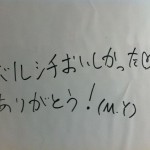 ボルシチおいしかった♡
ありがとう！(M.Y)